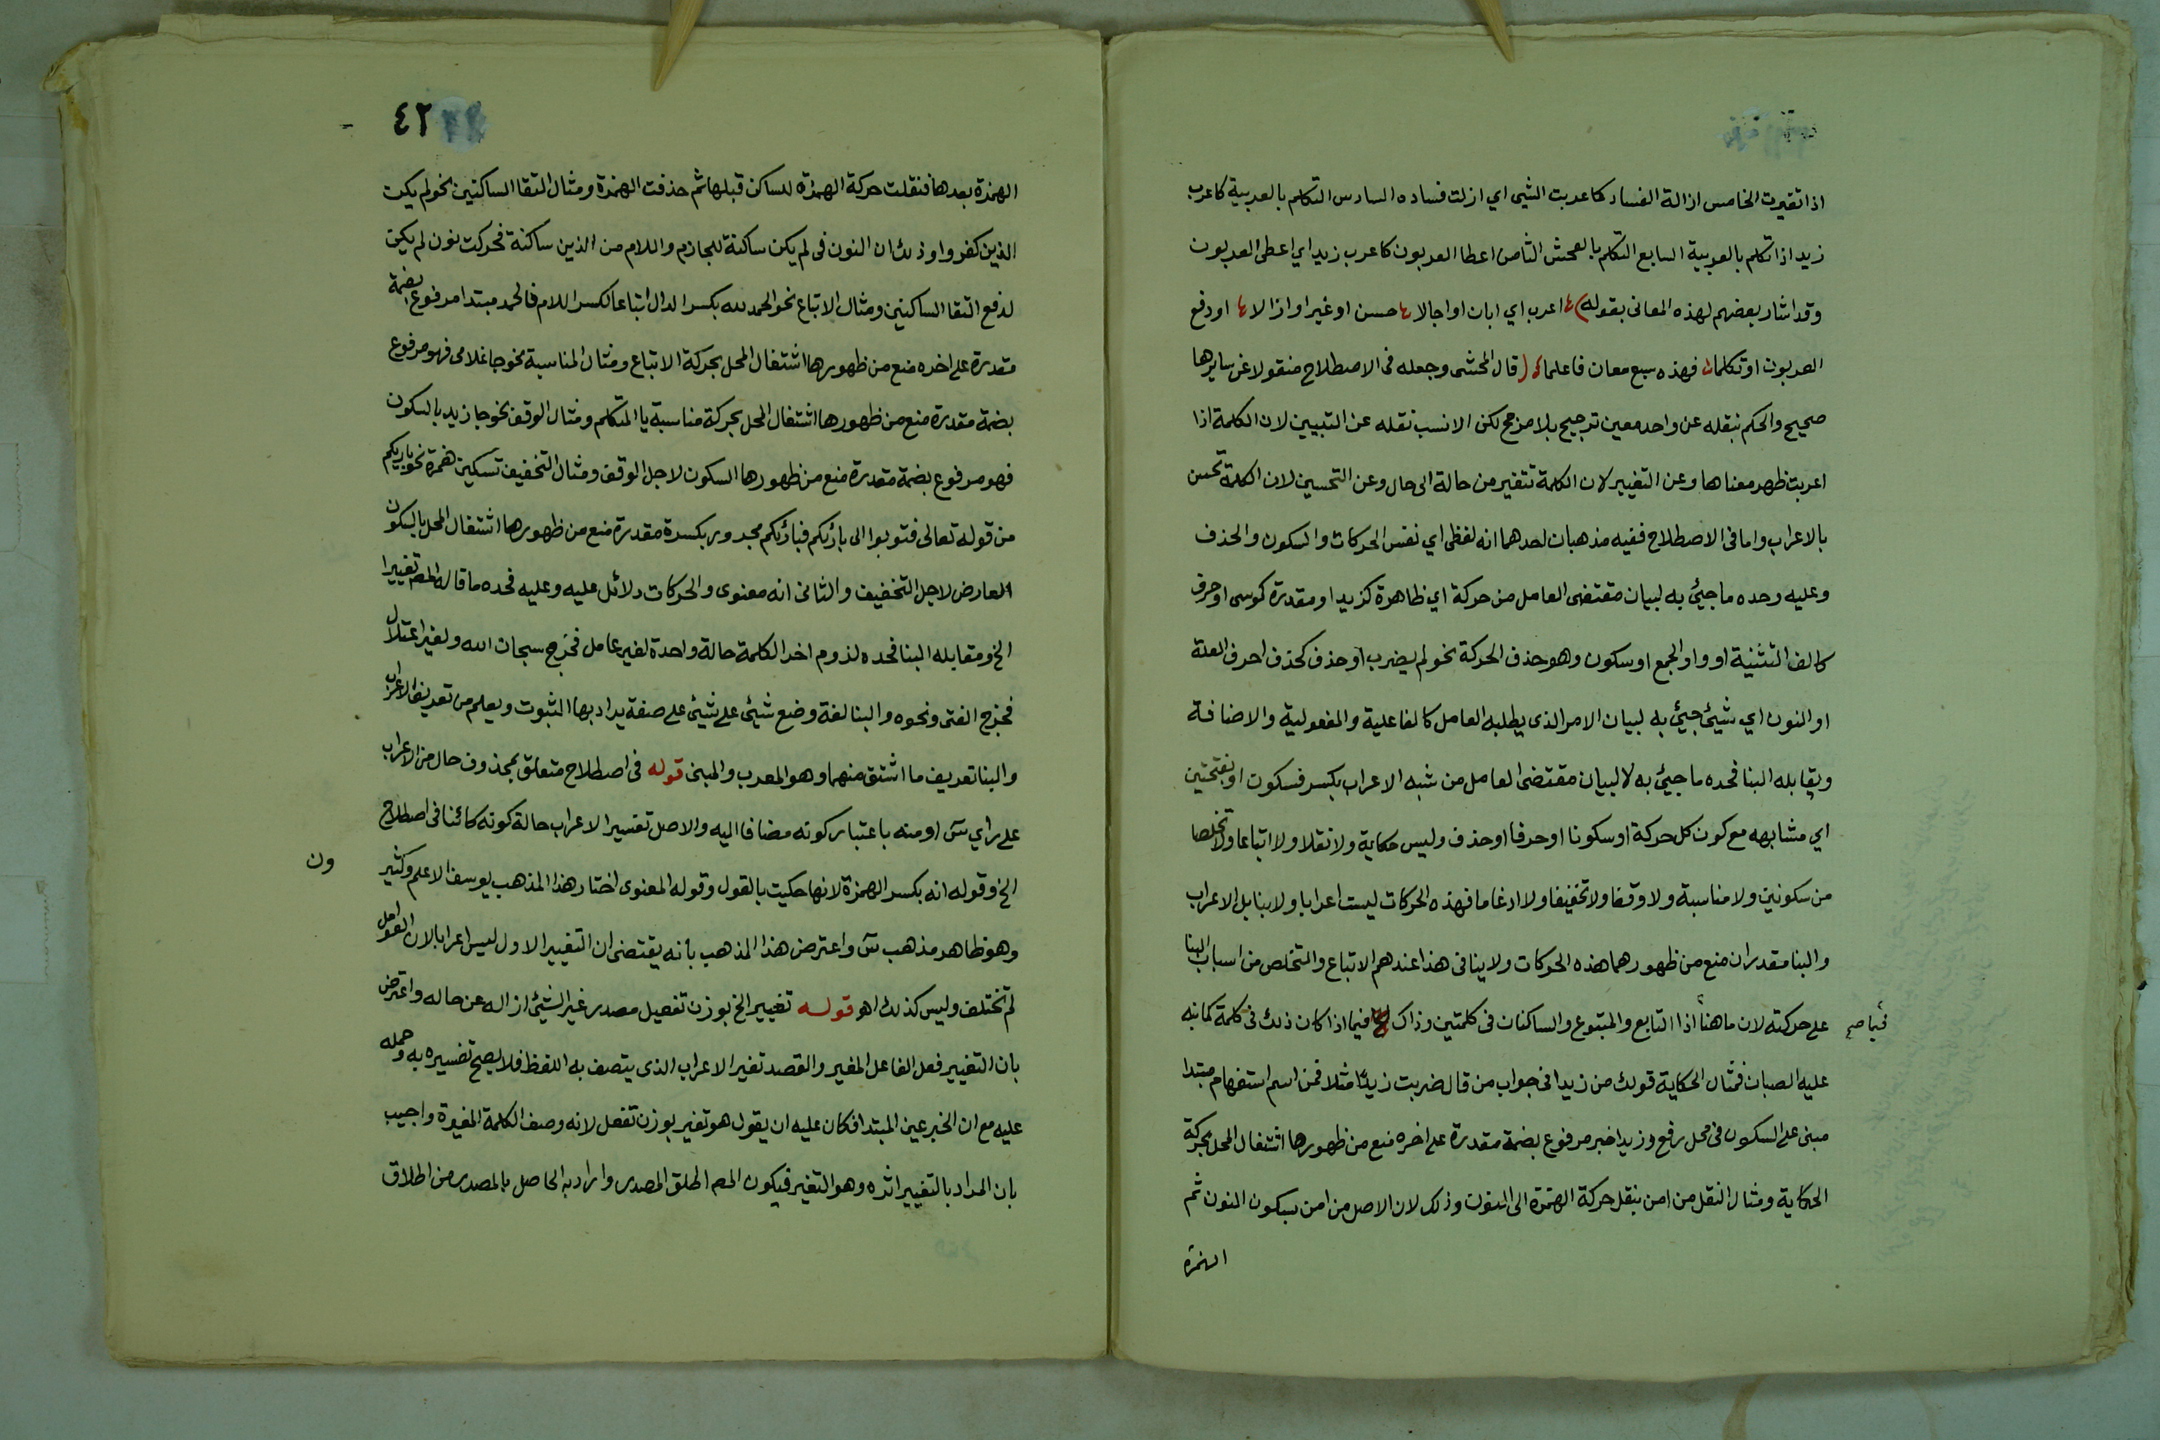 اذا تغيرت الخامس ازالة الفساد كاعربت الشيى اي ازلت فساده السادس التكلم بالعربية كاعرب
زيد اذا تكلم بالعربية السابع التكلم بالفحش الثامن اعطا العربون كاعرب زيد اي اعطى العربون
وقد اشار بعضهم لهذه المعانى بقوله اعرب اي ابان او اجالا حسن او غير او ازالا او دفع
العربون او تكلما فهذه سبع معان فاعلما قال المحشى وجعله فى الاصطلاح منقولا عن سايرها
صحيح والحكم بنقله عن واحد معين ترجيح بلا مرجح لكن الانسب نقله عن التبيين لان الكلمة اذا
اعربت ظهر معناها وعن التغيير لان الكلمة تتغير من حالة الى حال وعن التحسين لان الكلمة تحسن
بالاعراب واما فى الاصطلاح ففيه مذهبان احدهما انه لفظى اي نفس الحركات والسكون والحذف
وعليه وحده ما جيئ به لبيان مقتضى العامل من حركة اي ظاهرة كزيد او مقدرة كموسى او حرف
كالف التثنية او واو الجمع او سكون وهو حذف الحركة نحو لم يضرب او حذف كحذف احرف العلة
او النون اي شيئ جيئ به لبيان الامر الذى يطلبه العامل كالفاعلية والمفعولية والاضافة
ويقابله البنا فحده ما جيئ به لا لبيان مقتضى العامل من شبه الاعراب بكسر فسكون او بفتحتين
اي مشابهه مع كون كل حركة او سكونا او حرفا او حذف وليس حكاية ولا نقلا ولا اتباعا ولا تخلصا
من سكونين ولا مناسبة ولا وقفا ولا تخفيفا ولا ادغاما فهذه الحركات ليست اعرابا ولا بنا بل الاعراب
والبنا مقدران منع من ظهورهما هذه الحركات ولا ينافى هذا عندهم الاتباع والتخلص من اسباب البنا
على حركته لان ما هنا اذا التابع والمتبوع والساكنان فى كلمتين وذاك فيما اذا كان ذلك فى كلمة كما نبه
فيما صح
عليه الصبان فمثال الحكاية قولك من زيدا فى جواب من قال ضربت زيدا مثلا فمن اسم استفهام مبتدا
مبنى على السكون فى محل رفع وزيدا خبر مرفوع بضمة مقدرة على اخره منع من ظهورها اشتغال المحل بحركة
الحكاية ومثال النقل من امن بنقل حركة الهمزة الى النون وذلك لان الاصل من امن بسكون النون ثم
الهمزة
٤٢
الهمزة بعدها فنقلت حركة الهمزة للساكن قبلها ثم حذفت الهمزة ومثال التقا الساكنين نحو لم يكن
الذين كفروا وذلك ان النون فى لم يكن ساكنة للجازم واللام من الذين ساكنة فحركت نون لم يكن
لدفع التقا الساكنين ومثال الاتباع نحو الحمد لله بكسر الدال اتباعا لكسر اللام فالحمد مبتدا مرفوع بضمة
مقدرة على اخره منع من ظهورها اشتغال المحل بحركة الاتباع ومثال المناسبة نحو جا غلامى فهو مرفوع
بضمة مقدرة منع من ظهورها اشتغال المحل بحركة مناسبة يا المتكلم ومثال الوقف نحو جا زيد بالسكون
فهو مرفوع بضمة مقدرة منع من ظهورها السكون لاجل الوقف ومثال التخفيف تسكين همزة نحو باريكم
من قوله تعالى فتوبوا الى بارئكم فبارئكم مجرور بكسرة مقدرة منع من ظهورها اشتغال المحل بالسكون
العارض لاجل التخفيف والثانى انه معنوى والحركات دلائل عليه وعليه فحده ما قاله المص تغييرا
الخ ومقابله البنا فحده لزوم اخر الكلمة حالة واحدة لغير عامل فخرج سبحان الله ولغير اعتلال
فخرج الفتى ونحوه والبنا لغة وضع شيئ على شيئ على صفة يراد بها الثبوت ويعلم من تعريف الاعراب
والبنا تعريف ما اشتق منهما وهو المعرب والمبنى قوله فى اصطلاح متعلق بمحذوف حال من الاعراب
على راي س او منه باعتبار كونه مضافا اليه والاصل تفسير الاعراب حالة كونه كائنا فى اصطلاح
الخ وقوله انه بكسر الهمزة لانها حكيت بالقول وقوله المعنوى اختار هذا المذهب يوسف الاعلم وكثير
ون
وهو ظاهر مذهب س واعترض هذا المذهب بأنه يقتضى ان التغيير الاول ليس اعرابا لان العوامل
لم تختلف وليس كذلك اهو قوله تغيير الخ بوزن تفعيل مصدر غير الشيئ ازاله عن حاله واعترض
بان التغيير فعل الفاعل المغير والقصد تغير الاعراب الذى يتصف به اللفظ فلا يصح تفسيره به وحمله
عليه مع ان الخبر عين المبتدا فكان عليه ان يقول هو تغير بوزن تفعل لانه وصف الكلمة المغيرة واجيب
بان المراد بالتغيير اثره وهو التغير فيكون المص اطلق المصدر واراد به الحاصل بالمصدر من اطلاق